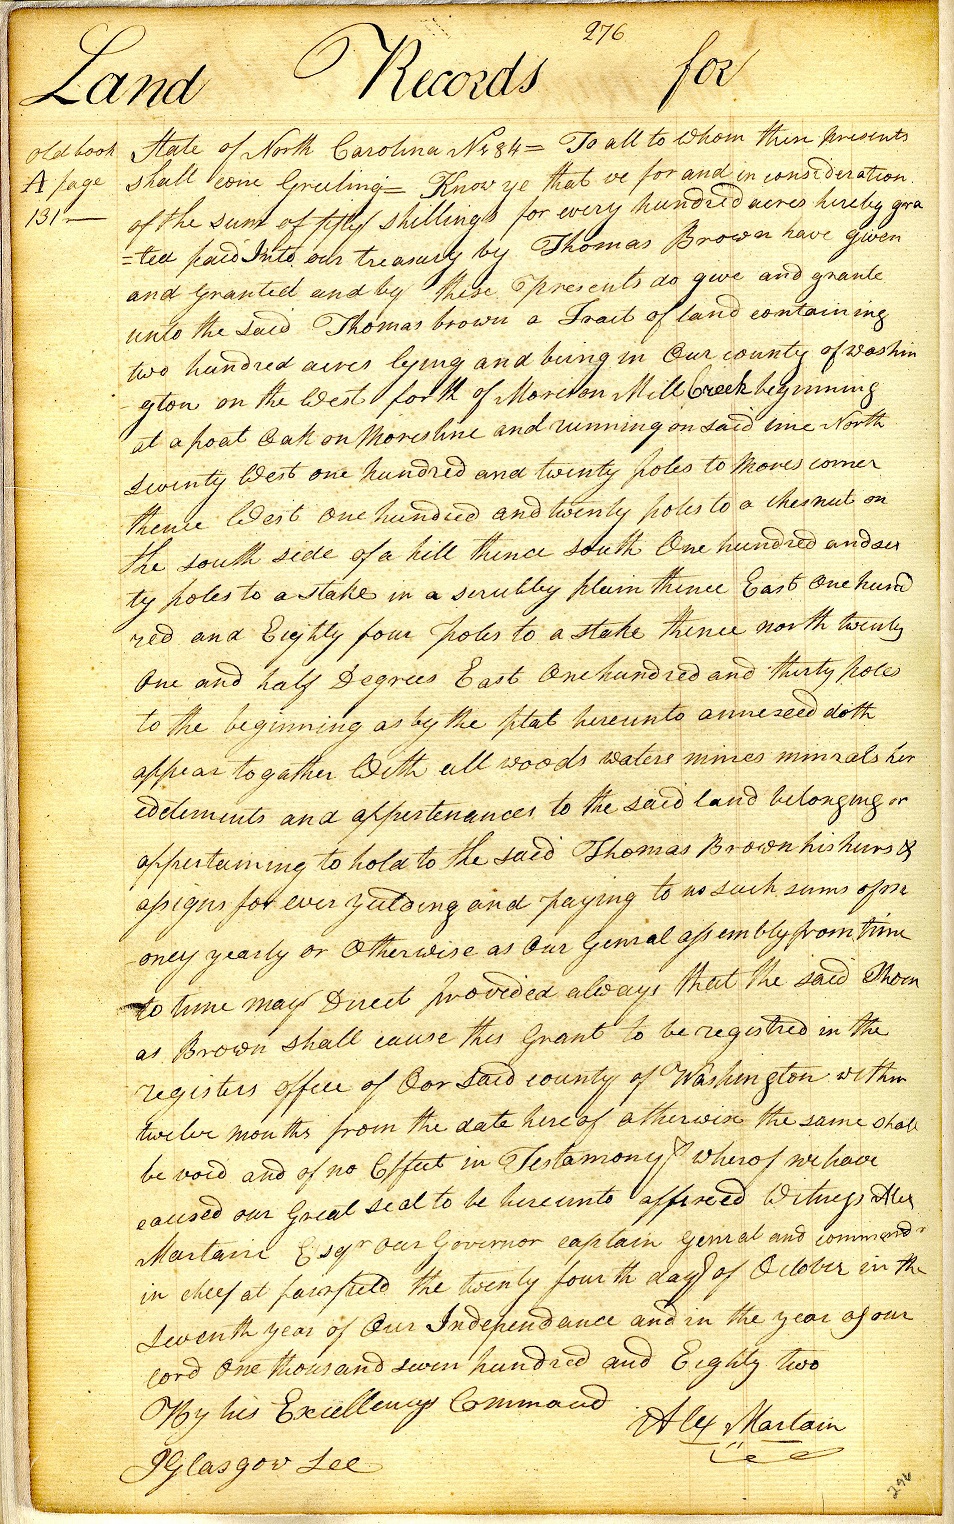 276
Land Records for
old book
A page
131 —
State of North Carolina No 84 = To all to whom these presents
shall come Greeting = Know ye that we for and in consideration
of the sum of fifty shillings for every hundred acres hereby gra
=ted paid Into our treasury by Thomas Brown have given
and granted and by these presents do give and grante
unto the said Thomas brown a Tract of land containing
two hundred acres lying and being in Our county of washin
gton on the West forth of More on Mill Creek beginning
at a poat Oak on Moresline and running on said line North
seventy West one hundred and twenty poles to Mores corner
thence West one hundred and twenty poles to a chesnut on
the south side of a hill thence south One hundred and sex
ty poles to a stake in a scrubby plain thence East One hund
red and Eighty four poles to a stake thence north twenty
One and half Degrees East One hundred and thirty poles
to the beginning as by the plat hereunto annexeed doth
appear togather With all woods waters mines minrals her
edelements and appertenances to the said land belonging or
appertaining to hold to the said Thomas Brown his heirs &
assigns for ever yeilding and paying to us such sums of m
oney yearly or Otherwise as Our genral assembly from time
to time may Direct provided always that the said Thom
as Brown shall cause this Grant to be registred in the
registers office of Oor said county of Washington within
twelve months from the date here of otherwise the same shall
be void and of no Effect in Testamony wherof we have
caused our Great seal to be hereunto affixeed Witness Alex
Martain Esqr Our Governor captain genral and command r
in cheef at fairfield the twenty fourth day of October in the
seventh year of Our Independance and in the year of our
lord One thousand seven hundred and Eighty two
By his Excellencys Command
Alex Martain
J Glasgow Sec
296